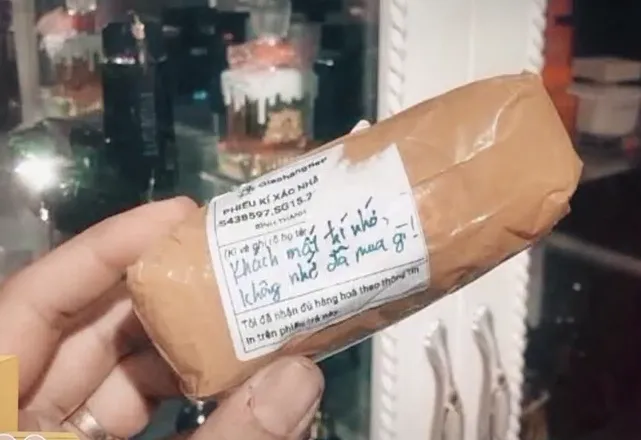 Giaohangtiet
PHIẾU KÍ XÁC NHẬ
S438597.SG15.2
BÌNH THẠNH
(Kí và ghi rõ họ tên
Khách mất trí nhớ,
không nhớ đã mua gì!
Tôi đã nhận đủ hàng hoá theo thông tin
in trên phiếu